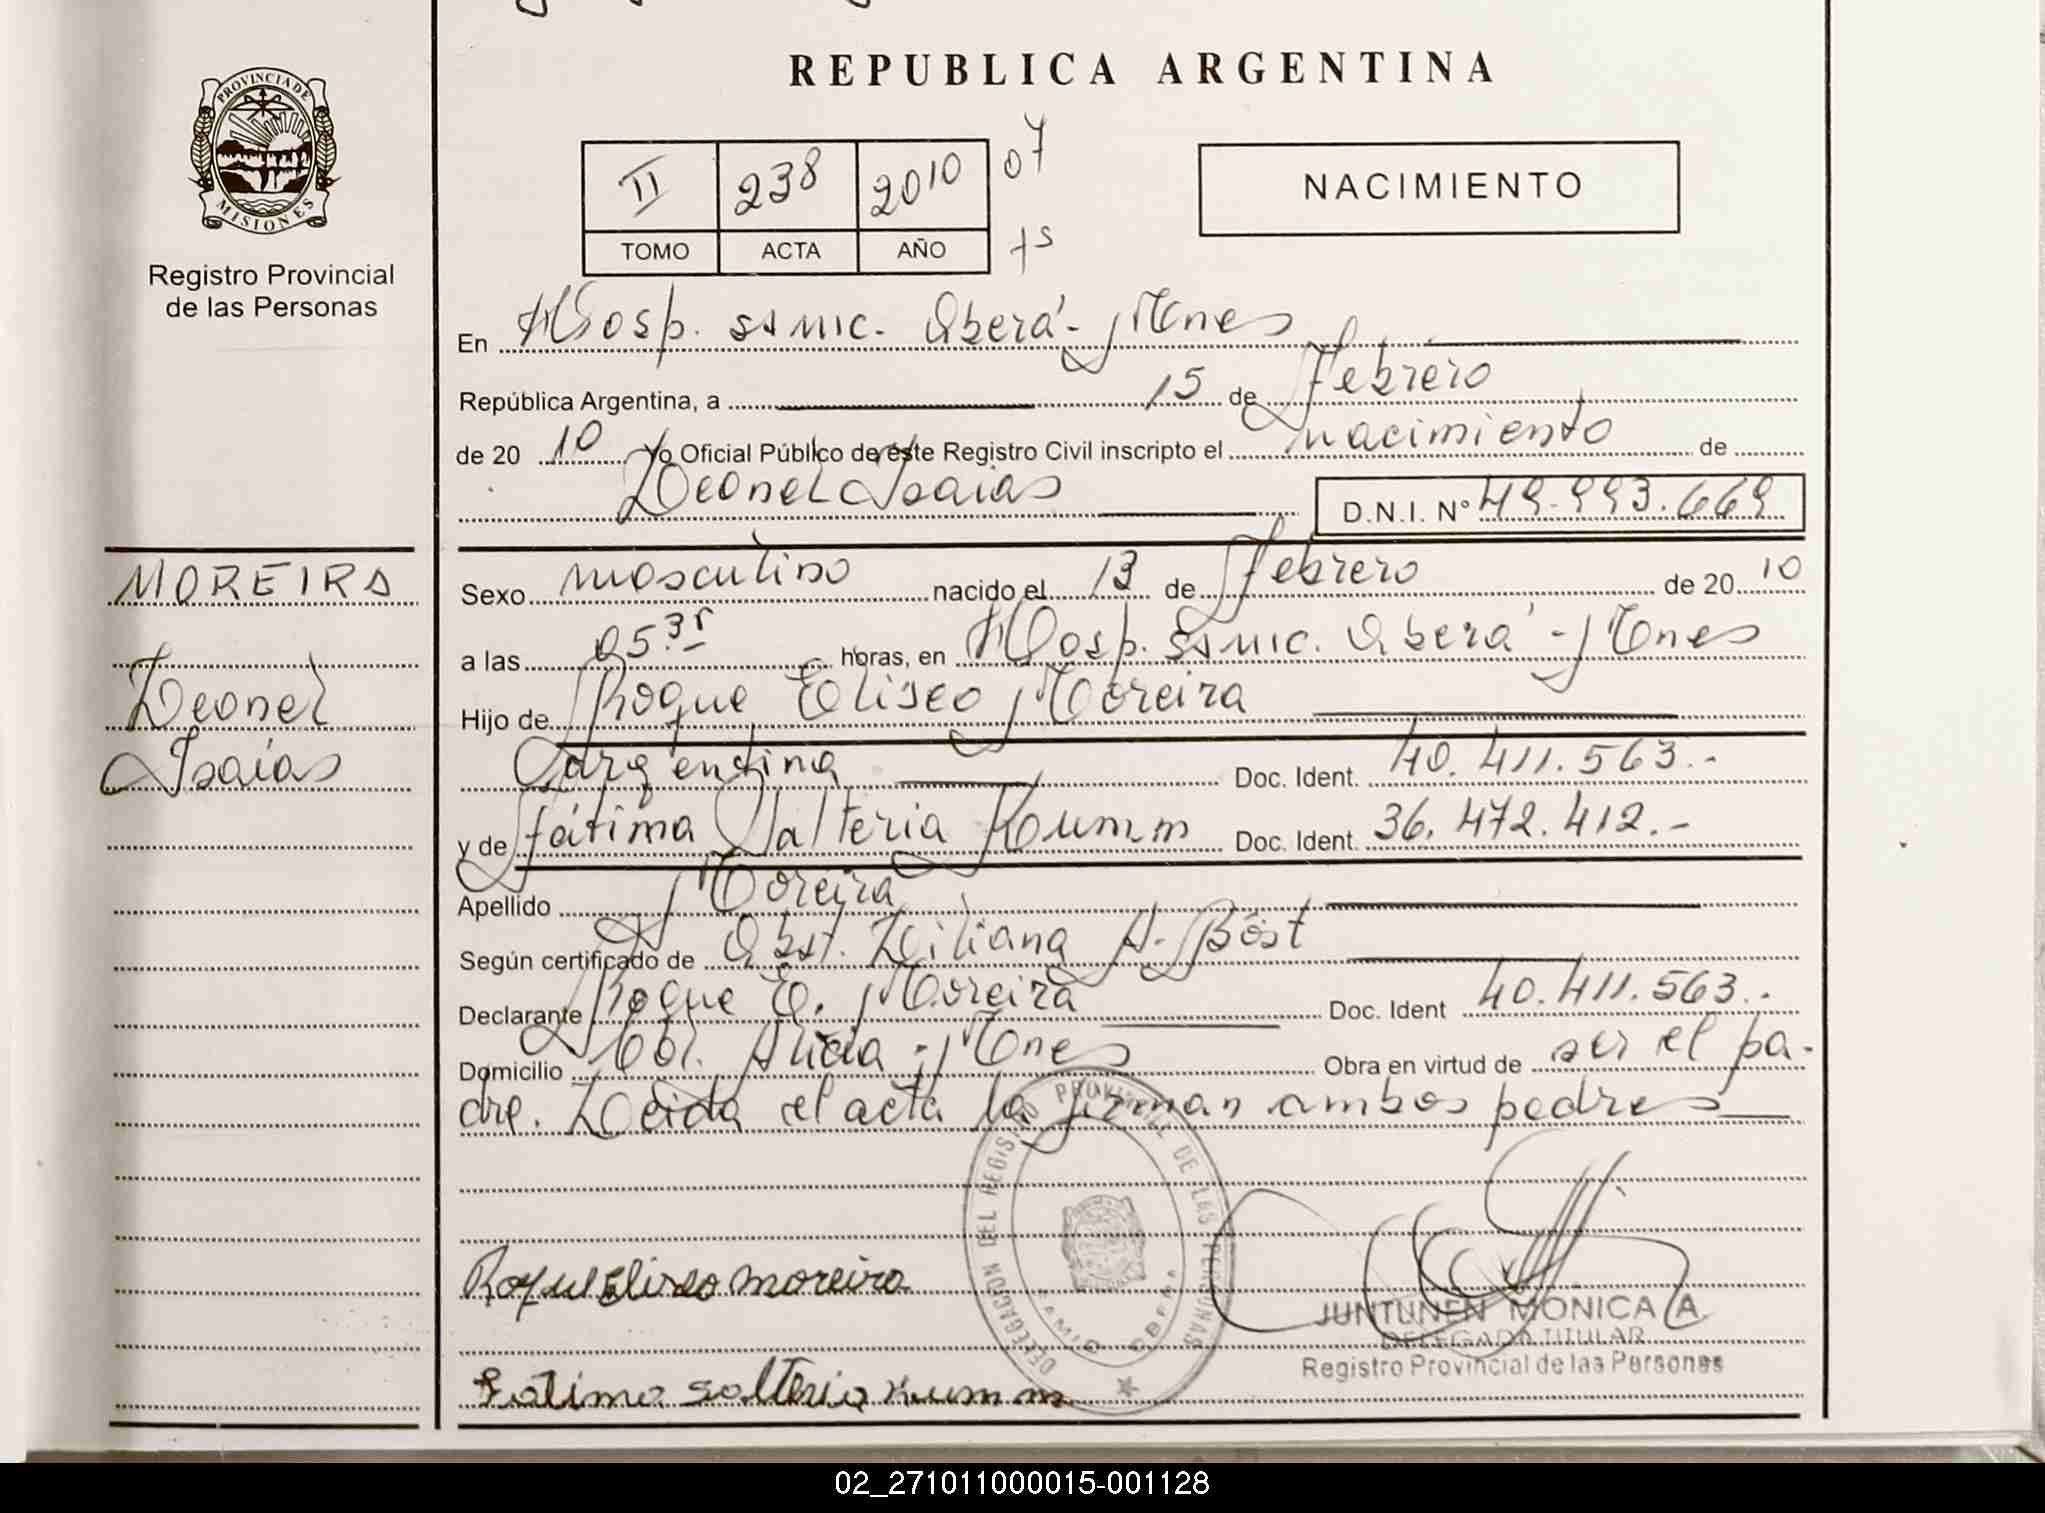 REPUBLICA ARGENTINA
PROVINCIA DE MISIONES
Registro Provincial
de las Personas
II 238 2010 07
TOMO ACTA AÑO
NACIMIENTO
En Hosp. SAMIC. Oberá - Mnes
República Argentina, a 15 de Febrero
de 20 10 Yo Oficial Público de este Registro Civil inscripto el nacimiento de
Leonel Isaias D.N.I. Nº 49.993.669
MOREIRA
Leonel
Isaías
Sexo masculino nacido el 13 de Febrero de 20 10
a las 05.35 horas, en Hosp. SAMIC. Oberá - Mnes
Hijo de Roque Eliseo Moreira
Argentina Doc. Ident. 40.411.563.-
y de Fátima Salteria Kumm Doc. Ident. 36.472.412.-
Apellido Moreira
Según certificado de Obst. Liliana A. Bost
Declarante Roque E. Moreira Doc. Ident 40.411.563.-
Domicilio Col. Alicia - Mnes Obra en virtud de ser el pa-
dre. Leida el acta la firman ambos padres
DELEGACION DEL REGISTRO PROVINCIAL DE LAS PERSONAS
SAMIC OBERA
Roque Eliseo moreira
JUNTUNEN MONICA A
DELEGADA TITULAR
Registro Provincial de las Personas
Fatima salteria Kumm
02_271011000015-001128